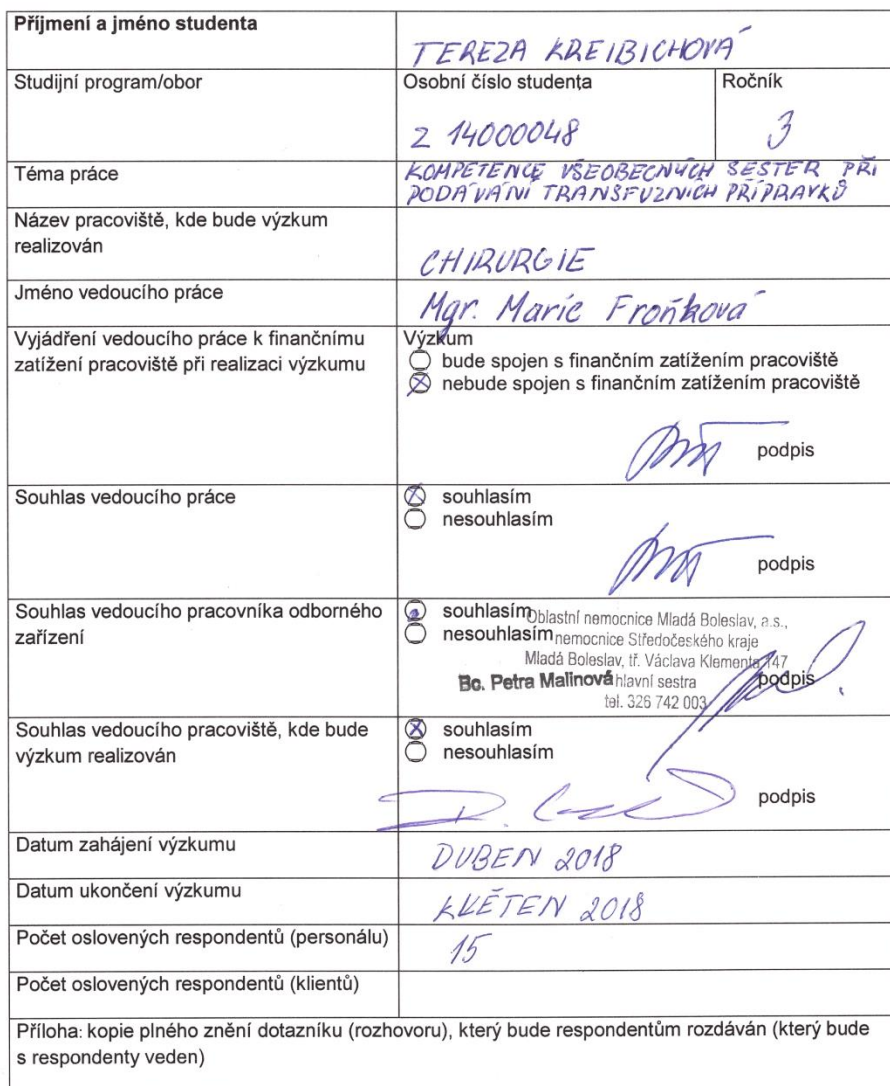 Příjmení a jméno studenta
TEREZA KREIBICHOVÁ
Studijní program/obor
Osobní číslo studenta
Ročník
Z 14000048
3
Téma práce
KOMPETENCE VŠEOBECNÝCH SESTER PŘI
PODÁVÁNÍ TRANSFUZNICH PŘÍPRAVKŮ
Název pracoviště, kde bude výzkum
realizován
CHIRURGIE
Jméno vedoucího práce
Mgr. Marie Froňková
Vyjádření vedoucího práce k finančnímu
zatížení pracoviště při realizaci výzkumu
Výzkum
bude spojen s finančním zatížením pracoviště
nebude spojen s finančním zatížením pracoviště
podpis
Souhlas vedoucího práce
souhlasím
nesouhlasím
podpis
Souhlas vedoucího pracovníka odborného
zařízení
souhlasím
nesouhlasím
Oblastní nemocnice Mladá Boleslav, a.s.,
nemocnice Středočeského kraje
Mladá Boleslav, tř. Václava Klementa 147
Bc. Petra Malinová hlavní sestra
tel. 326 742 003
podpis
Souhlas vedoucího pracoviště, kde bude
výzkum realizován
souhlasím
nesouhlasím
podpis
Datum zahájení výzkumu
DUBEN 2018
Datum ukončení výzkumu
KVĚTEN 2018
Počet oslovených respondentů (personálu)
15
Počet oslovených respondentů (klientů)
Příloha: kopie plného znění dotazníku (rozhovoru), který bude respondentům rozdáván (který bude
s respondenty veden)